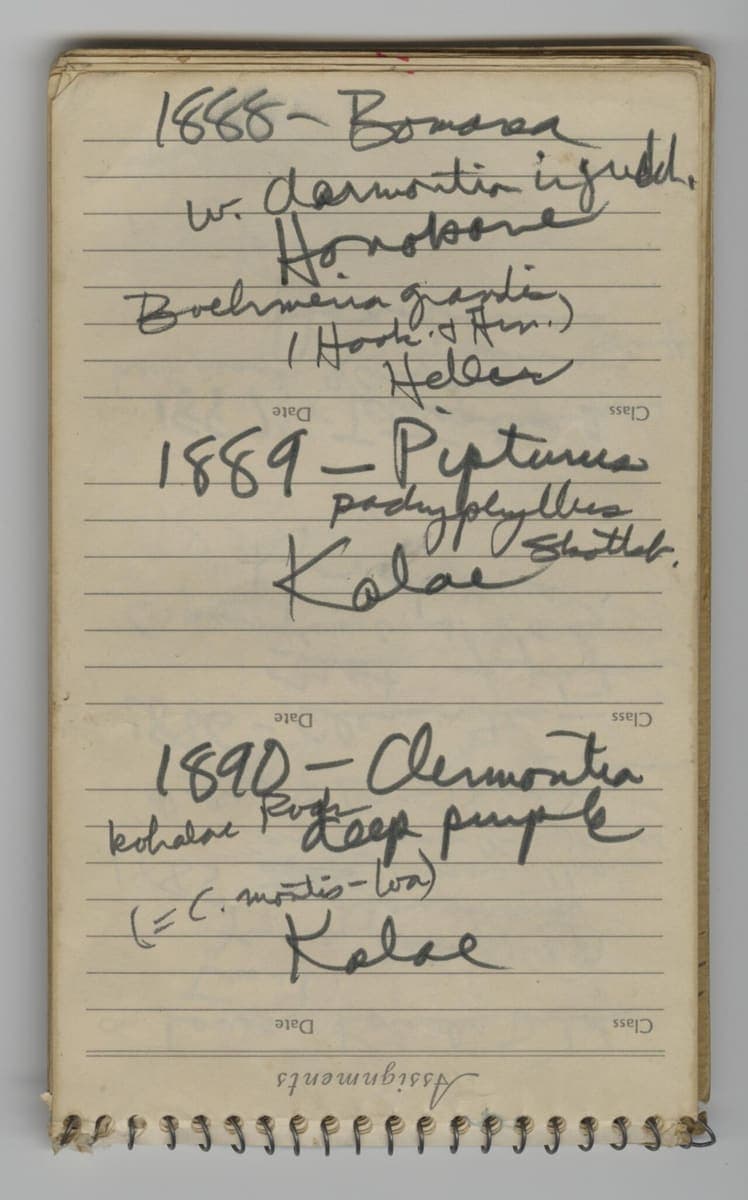 1888 - Bomarea
w. clermontia
Honokane
Boehmeria grandis
(Hook. & Arn.)
Heller
Class Date
1889 - Pipturus
pachyphyllus
Skottsb.
Kalae
Class Date
1890 - Clermontia
kohalae Rock
deep purple
(= C. montis-loa)
Kalae
Class Date
Assignments